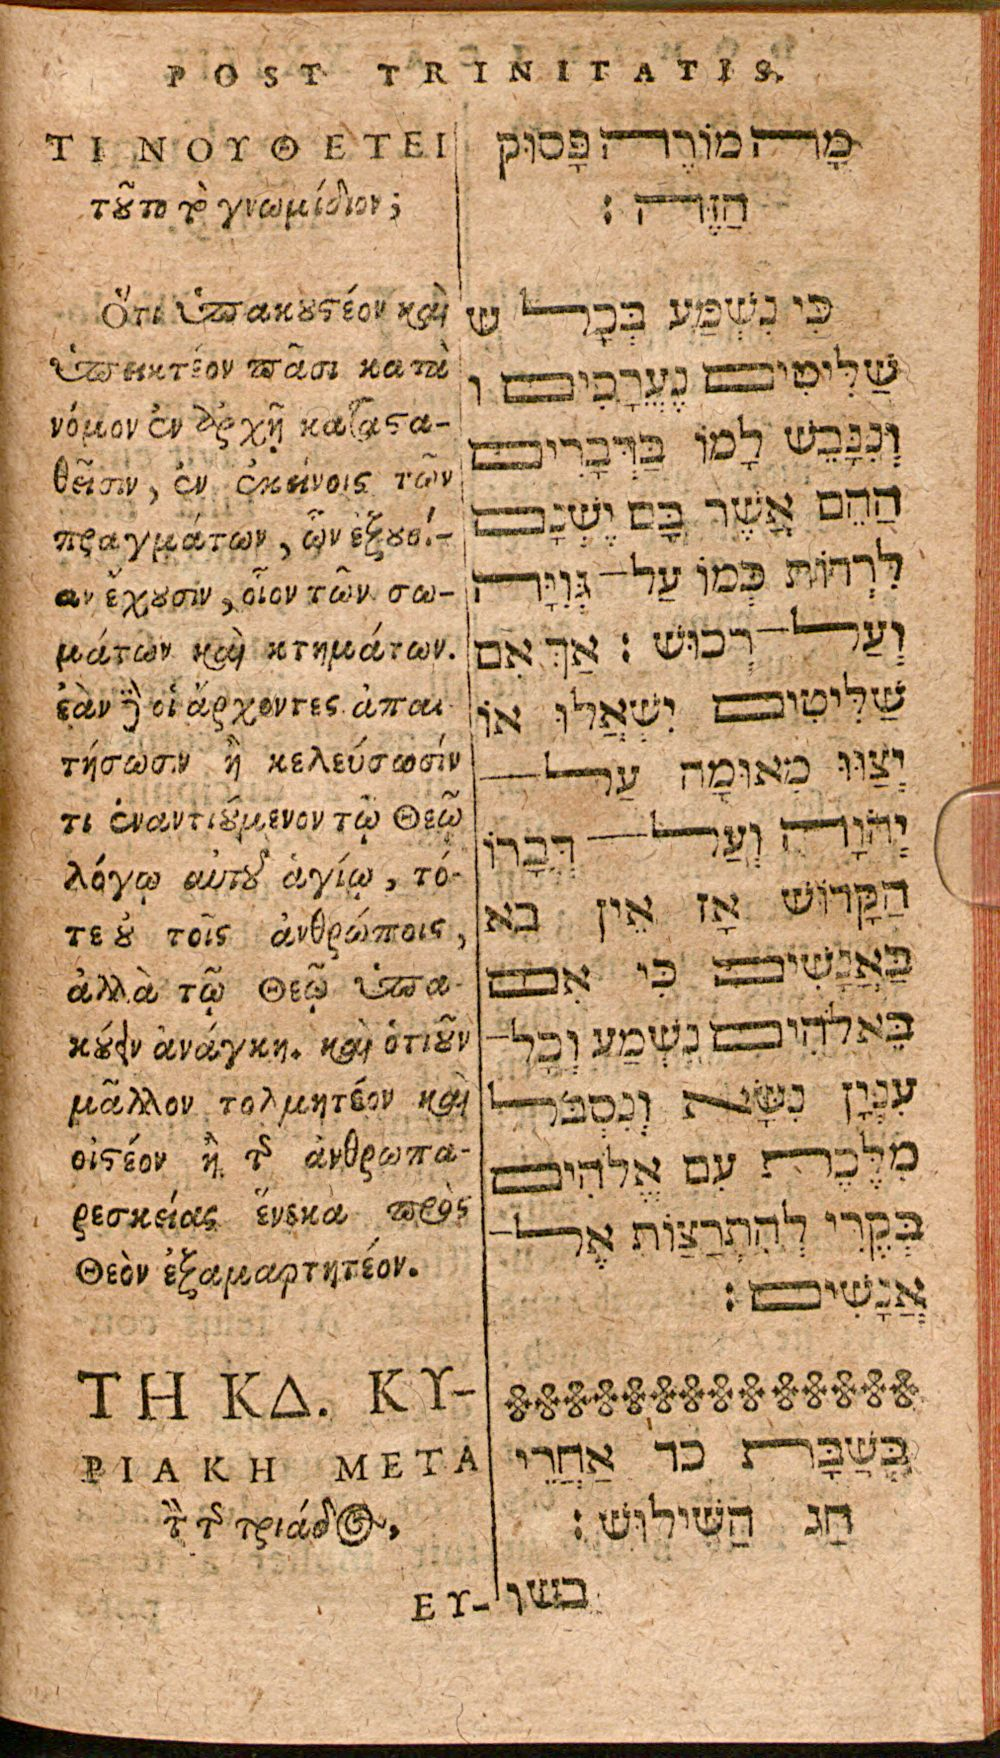 POST TRINITATIS.
ΤΙ ΝΟΥΘΕΤΕΙ
τοῦτο τὸ γνωμίδιον;
Ὅτι ὑπακουστέον καὶ
ὑπεικτέον πᾶσι κατὰ
νόμον ἐν ἀρχῇ καταστα-
θεῖσιν, ἐν ἐκείνοις τῶν
πραγμάτων, ὧν ἐξουσί-
αν ἔχουσιν, οἷον τῶν σω-
μάτων καὶ κτημάτων.
ἐὰν δὲ οἱ ἄρχοντες ἀπαι
τήσωσιν ἢ κελεύσωσίν
τι ἐναντιούμενον τῷ Θεῷ
λόγῳ αὐτοῦ ἁγίῳ, τό-
τε οὐ τοῖς ἀνθρώποις,
ἀλλὰ τῷ Θεῷ ὑπα-
κούειν ἀνάγκη. καὶ ὁτιοῦν
μᾶλλον τολμητέον καὶ
οἰστέον ἢ τῆς ἀνθρωπα-
ρεσκείας ἕνεκα πρὸς
Θεὸν ἐξαμαρτητέον.
ΤΗ ΚΔ. ΚΥ-
ΡΙΑΚΗ ΜΕΤΑ
τὴν τῆς τριάδος,
ΕΥ-
מָה מוֹרֶה פָּסוּק
הַזֶּה :
כִּי נִשְׁמַע בְּכָל ש
שַׁלִּיטִים נֶעֱרָכִים ו
וְנִכָּבֵשׁ לָמוֹ בַּדְּבָרִים
הַהֵם אֲשֶׁר בָּם יֶשְׁנָם
לִרְדּוֹת כְּמוֹ עַל־ גְּוִיָּה
וְעַל־ רְכוּשׁ : אַךְ אִם
שַׁלִּיטִים יִשְׁאֲלוּ אוֹ
יְצַוּוּ מְאוּמָה עַל־
יְהֹוָה וְעַל־ דְּבָרוֹ
הַקָּדוֹשׁ אָז אֵין בא
בַּאֲנָשִׁים כִּי אִם
בֵּאלֹהִים נִשְׁמַע וְכָל־
עִנְיָן נִשָּׂא וְנִסְבֹּל
מִלֶּכֶת עִם אֱלֹהִים
בְּקֶרִי לְהִתְרַצּוֹת אֶל־
אֲנָשִׁים :
בְּשַׁבָּת כד אַחֲרֵי
חַג הַשִּׁילוּשׁ :
בשו